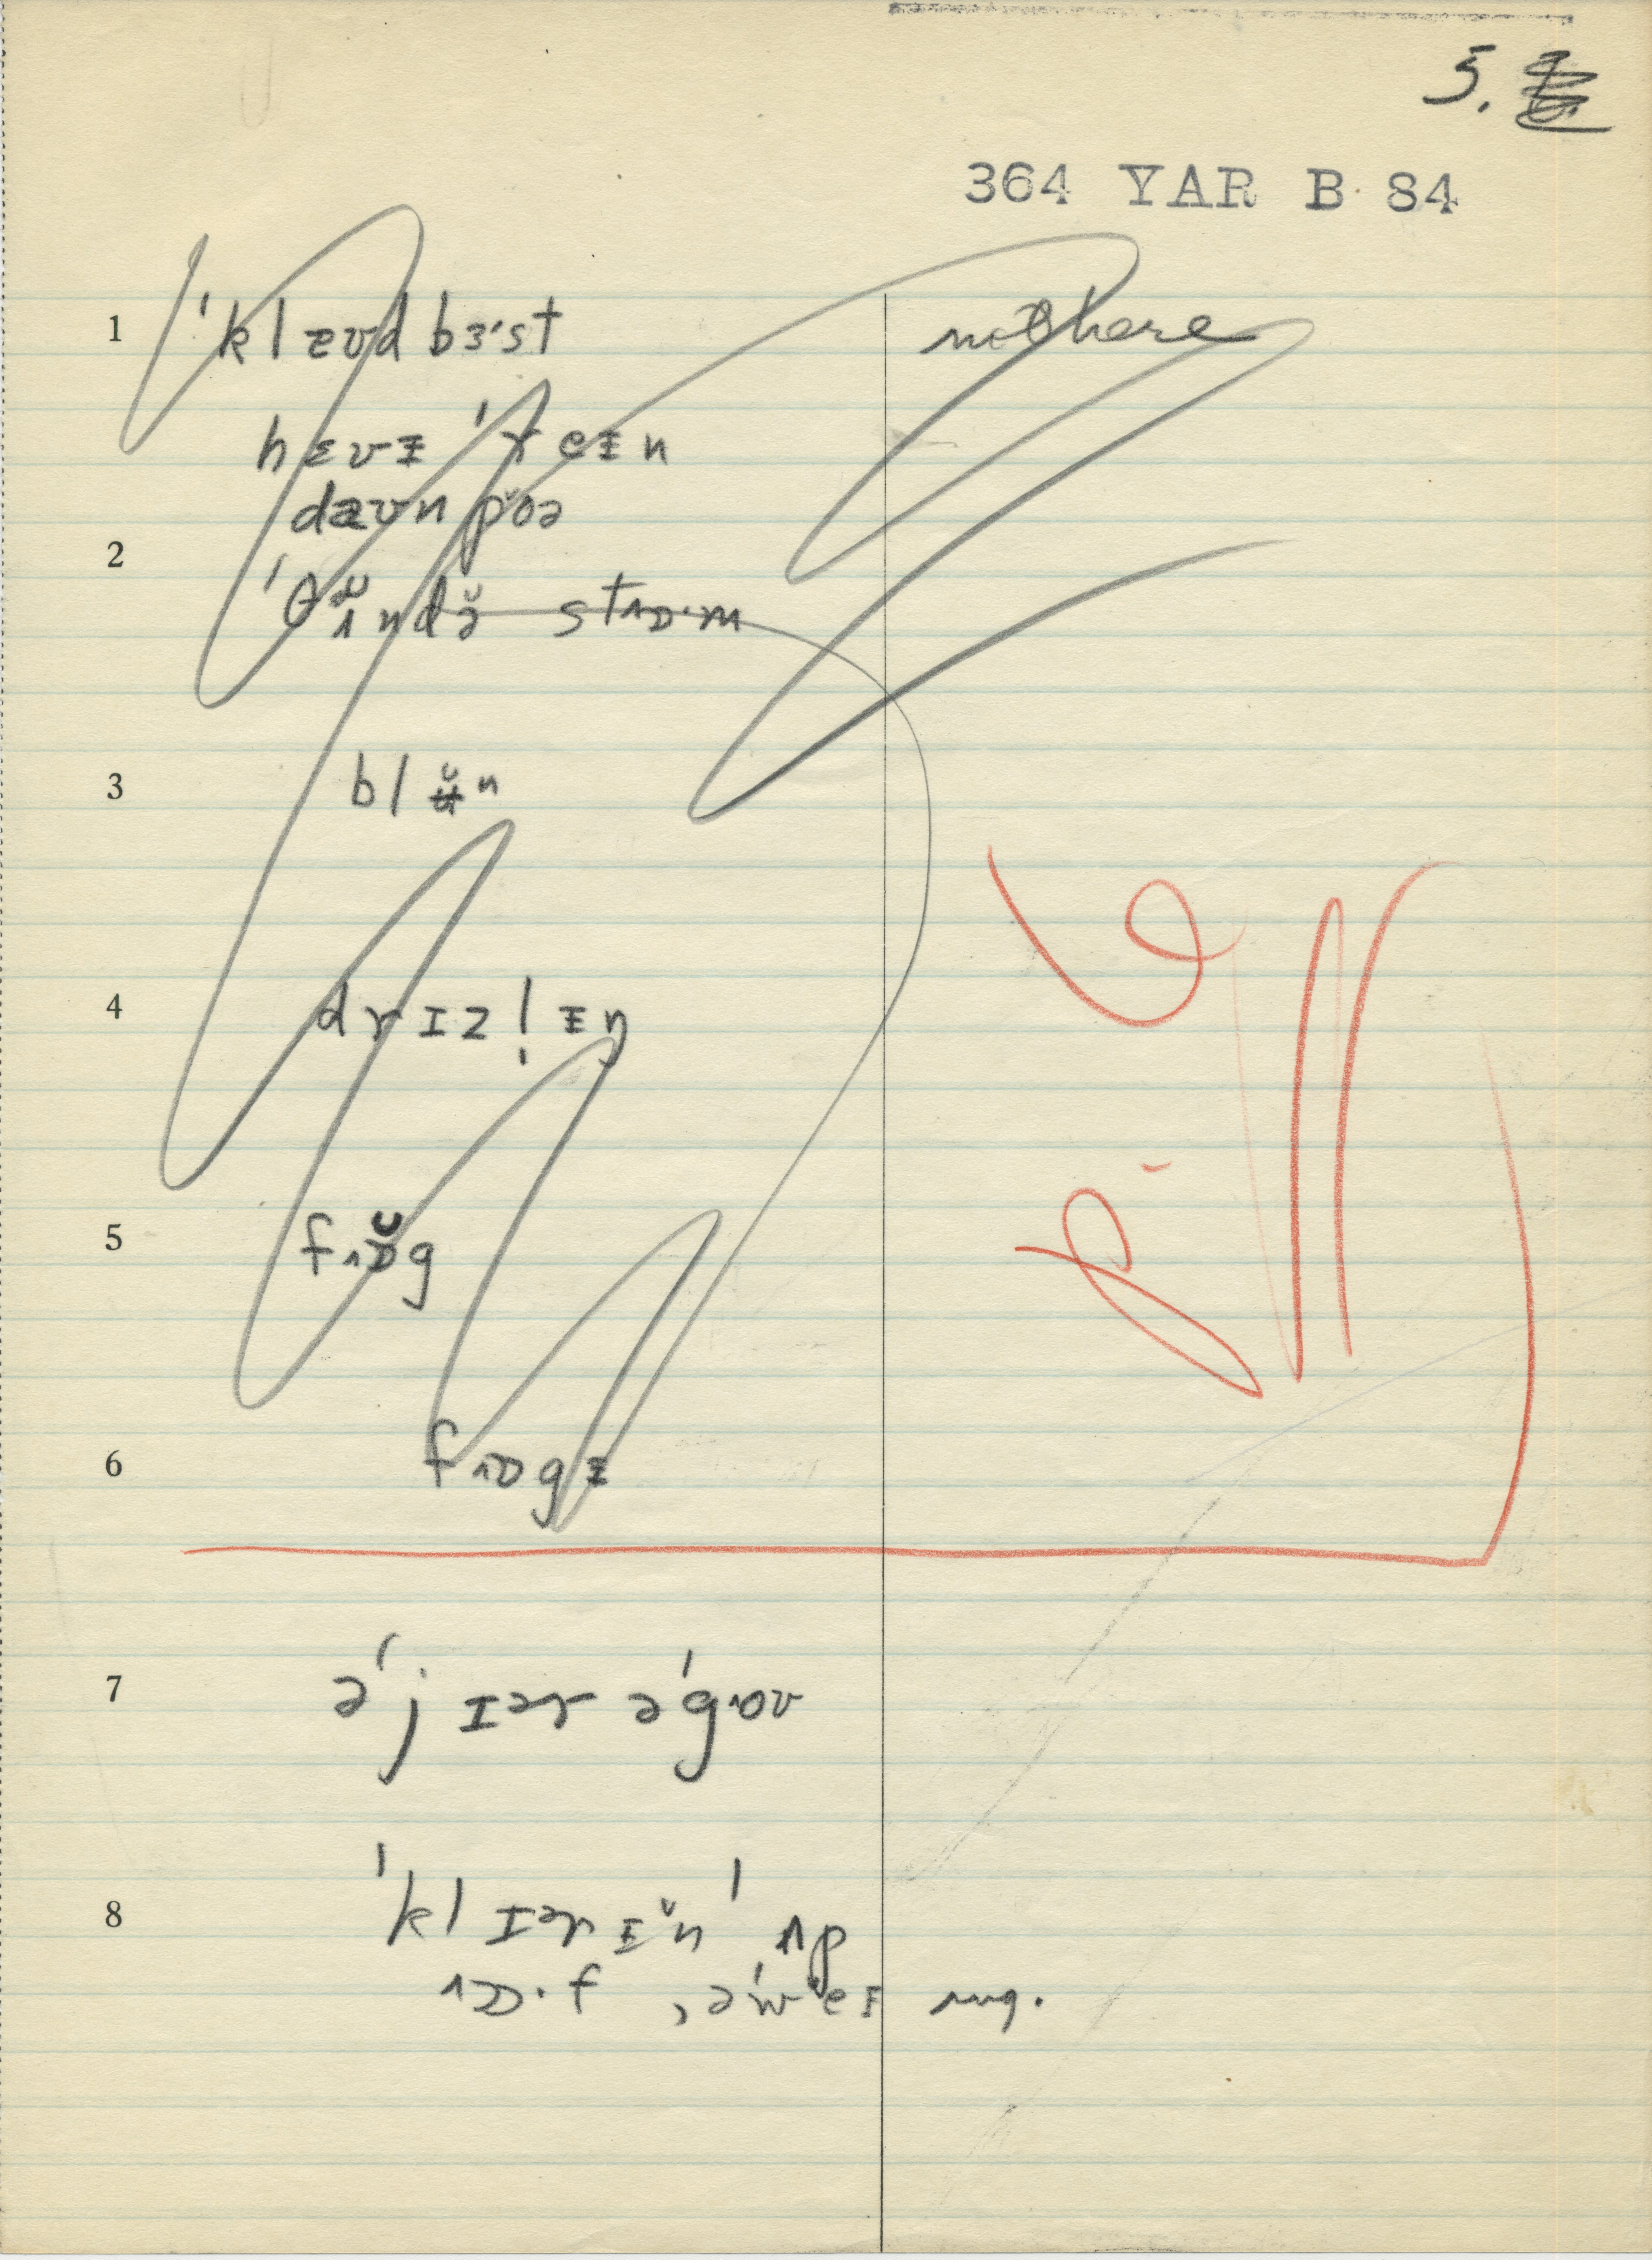 5.
364 YAR B 84
1 ˈklæʊd bɜ˞st not here
hɛvɪ ˈreɪn
dæʊn pŏə
2
ˈθʌ̆ndə̆ stɒ·m
3 blʉ̆n
4 drɪzl̩ɪŋ
5 fɒ̆g
6 fɒgɪ
7 əˈjɪər əˈgoʊ
8 ˈklɪərɪ̆n ˈʌp
ɒ·f, əˈweɪ